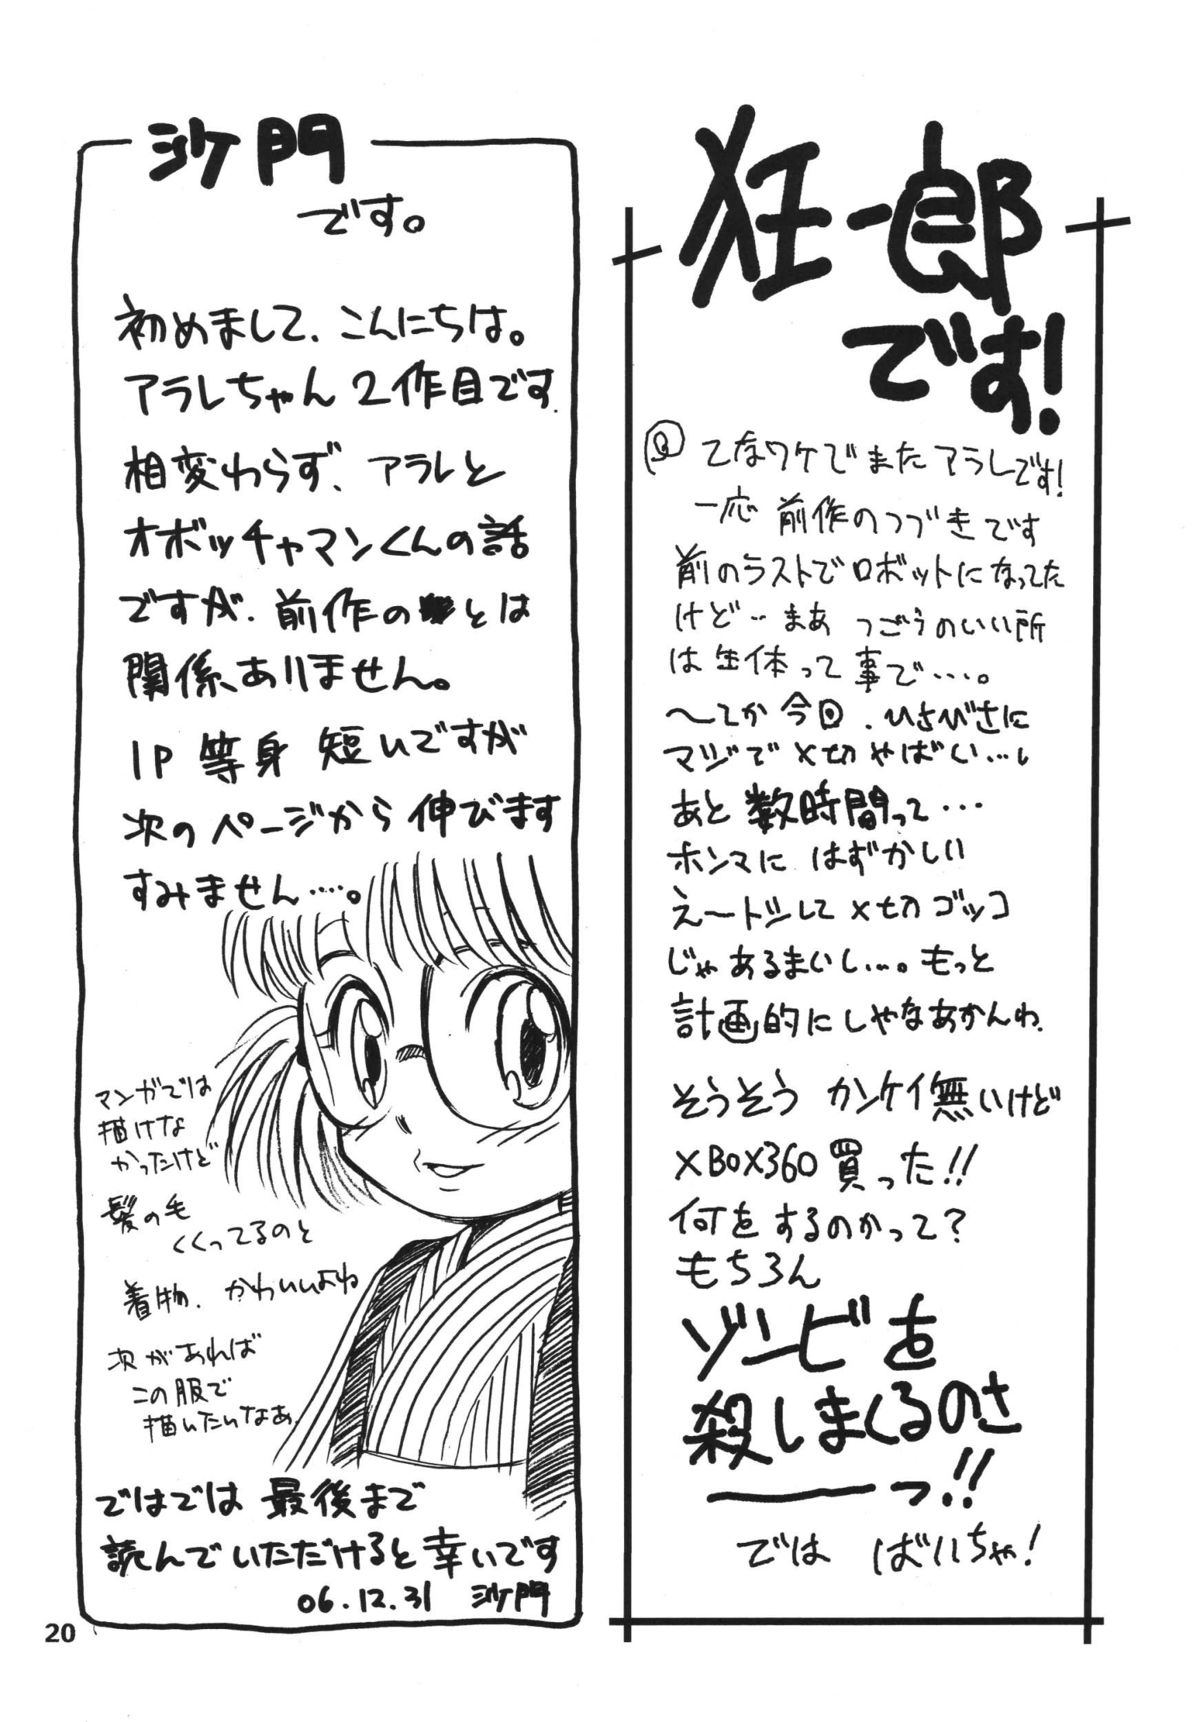 狂一郎
です!
てなワケでまたアラレです!
一応 前作のつづきです
前のラストでロボットになってた
けど‥まあ つごうのいい所
は生体って事で‥‥。
〜てか今回、ひさびさに
マジで〆切やばい…。
あと数時間って…
ホンマに はずかしい
え〜トシして〆切ゴッコ
じゃあるまいし…。もっと
計画的にしゃなあかんわ、
そうそう カンケイ無いけど
XBOX360買った!!
何をするのかって?
もちろん
ゾンビを
殺しまくるのさ
――っ!!
では ばいちゃ!
沙門
です。
初めまして、こんにちは。
アラレちゃん 2作目です
相変わらず、アラレと
オボッチャマンくんの話
ですが、前作のとは
関係ありません。
1P 等身 短いですが
次のページから 伸びます
すみません‥‥。
マンガでは
描けな
かったけど
髪の毛
くくってるのと
着物、かわいいよね
次があれば
この服で
描いたいなあ、
ではでは 最後まで
読んでいただけると幸いです
06.12.31 沙門
20